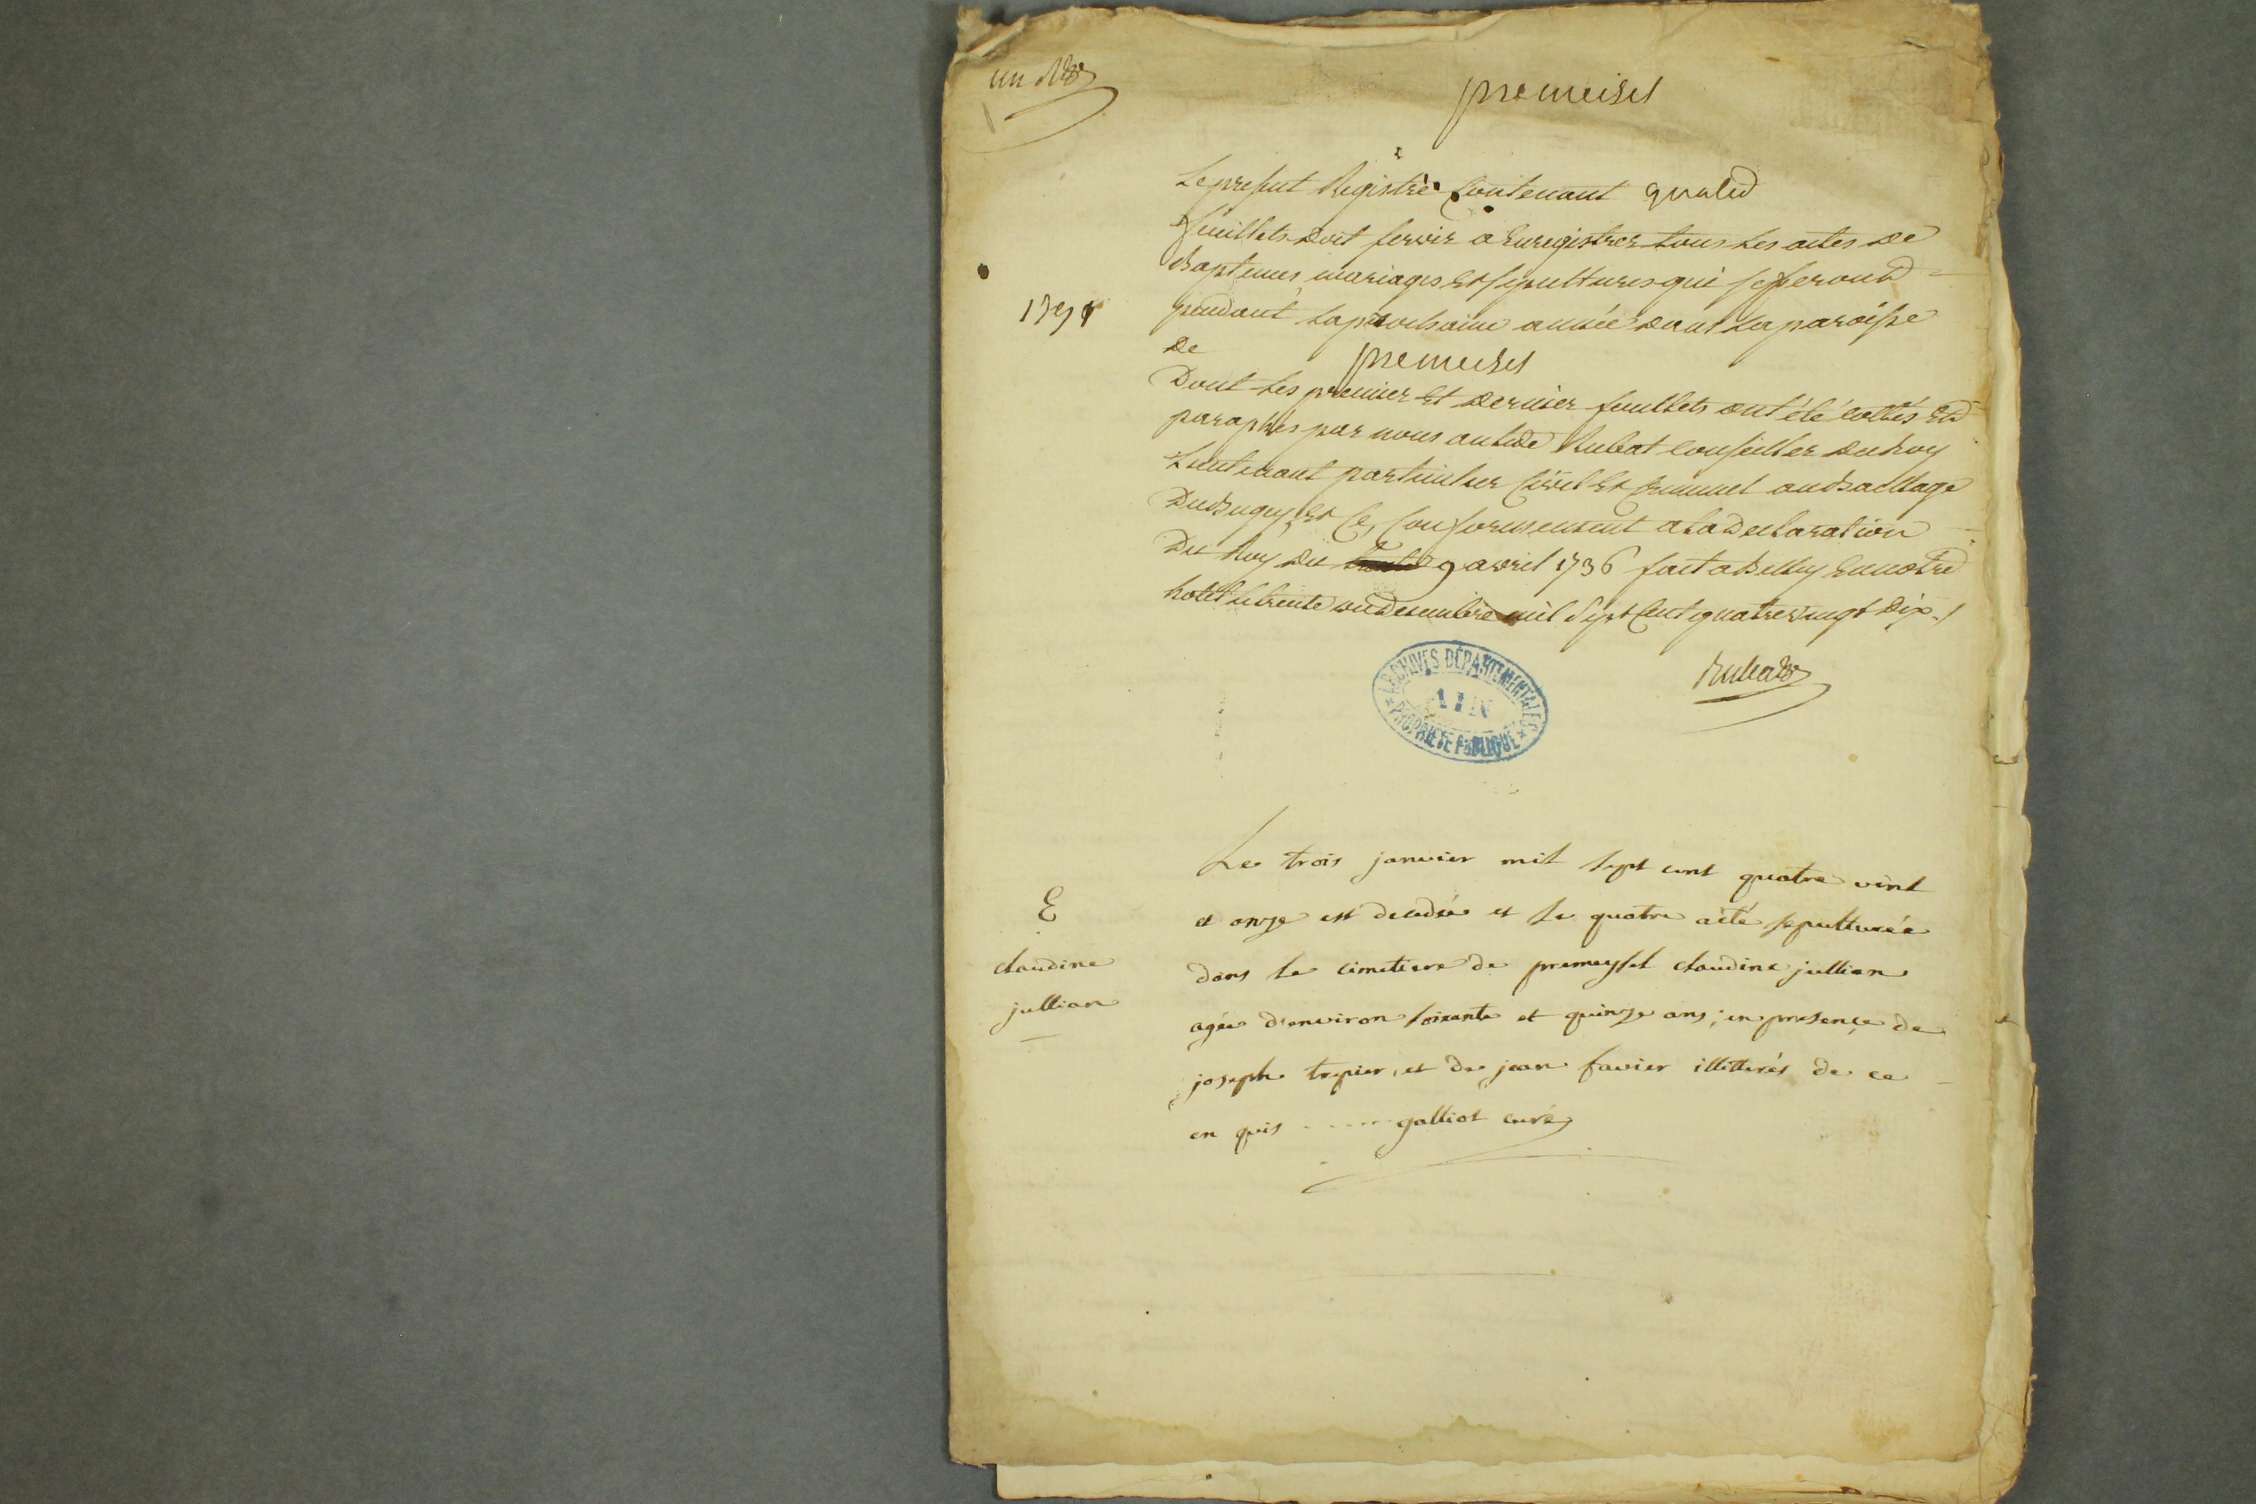 un
premeisel
Le present Registre Contenant quatre
feuillets doit servir a Enregistrer tous les actes de
Baptemes, mariages Et sepultures qui se feront
1791
pendant la prochaine année dans la paroisse
de premeisel
Dont les premier Et dernier feuillets ont été cottés Et
paraphés par nous antide Rubat Conseiller du Roy
Lieutenant particulier Civil Et Criminel au Bailliage
Du Bugey, Et Ce, Conformement a la Declaration
Du Roy du 9 avril 1736 fait a Belley En notre
hotel le trente un decembre mil Sept Cent quatre vingt Dix ./
Rubat
ARCHIVES DÉPARTEMENTALES
AIN
PROPRIÉTÉ PUBLIQUE
Le trois janvier mil sept cent quatre vint
et onze est decedée et le quatre a été sepulturée
dans le cimetiere de premeysel claudine jullian
agée d'environ soixante et quinze ans; en presençe de
joseph trepier, et de jean favier illitterés de ce
en quis ...... galliot curé
E
claudine
jullian